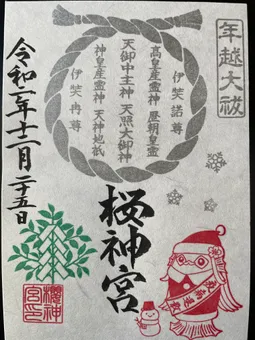 年越大祓
伊弉諾尊
高皇産霊神 歴朝皇霊
天御中主神 天照大御神
神皇産霊神 天神地祇
伊弉冉尊
桜神宮
令和二年十二月二十五日
櫻神
宮印